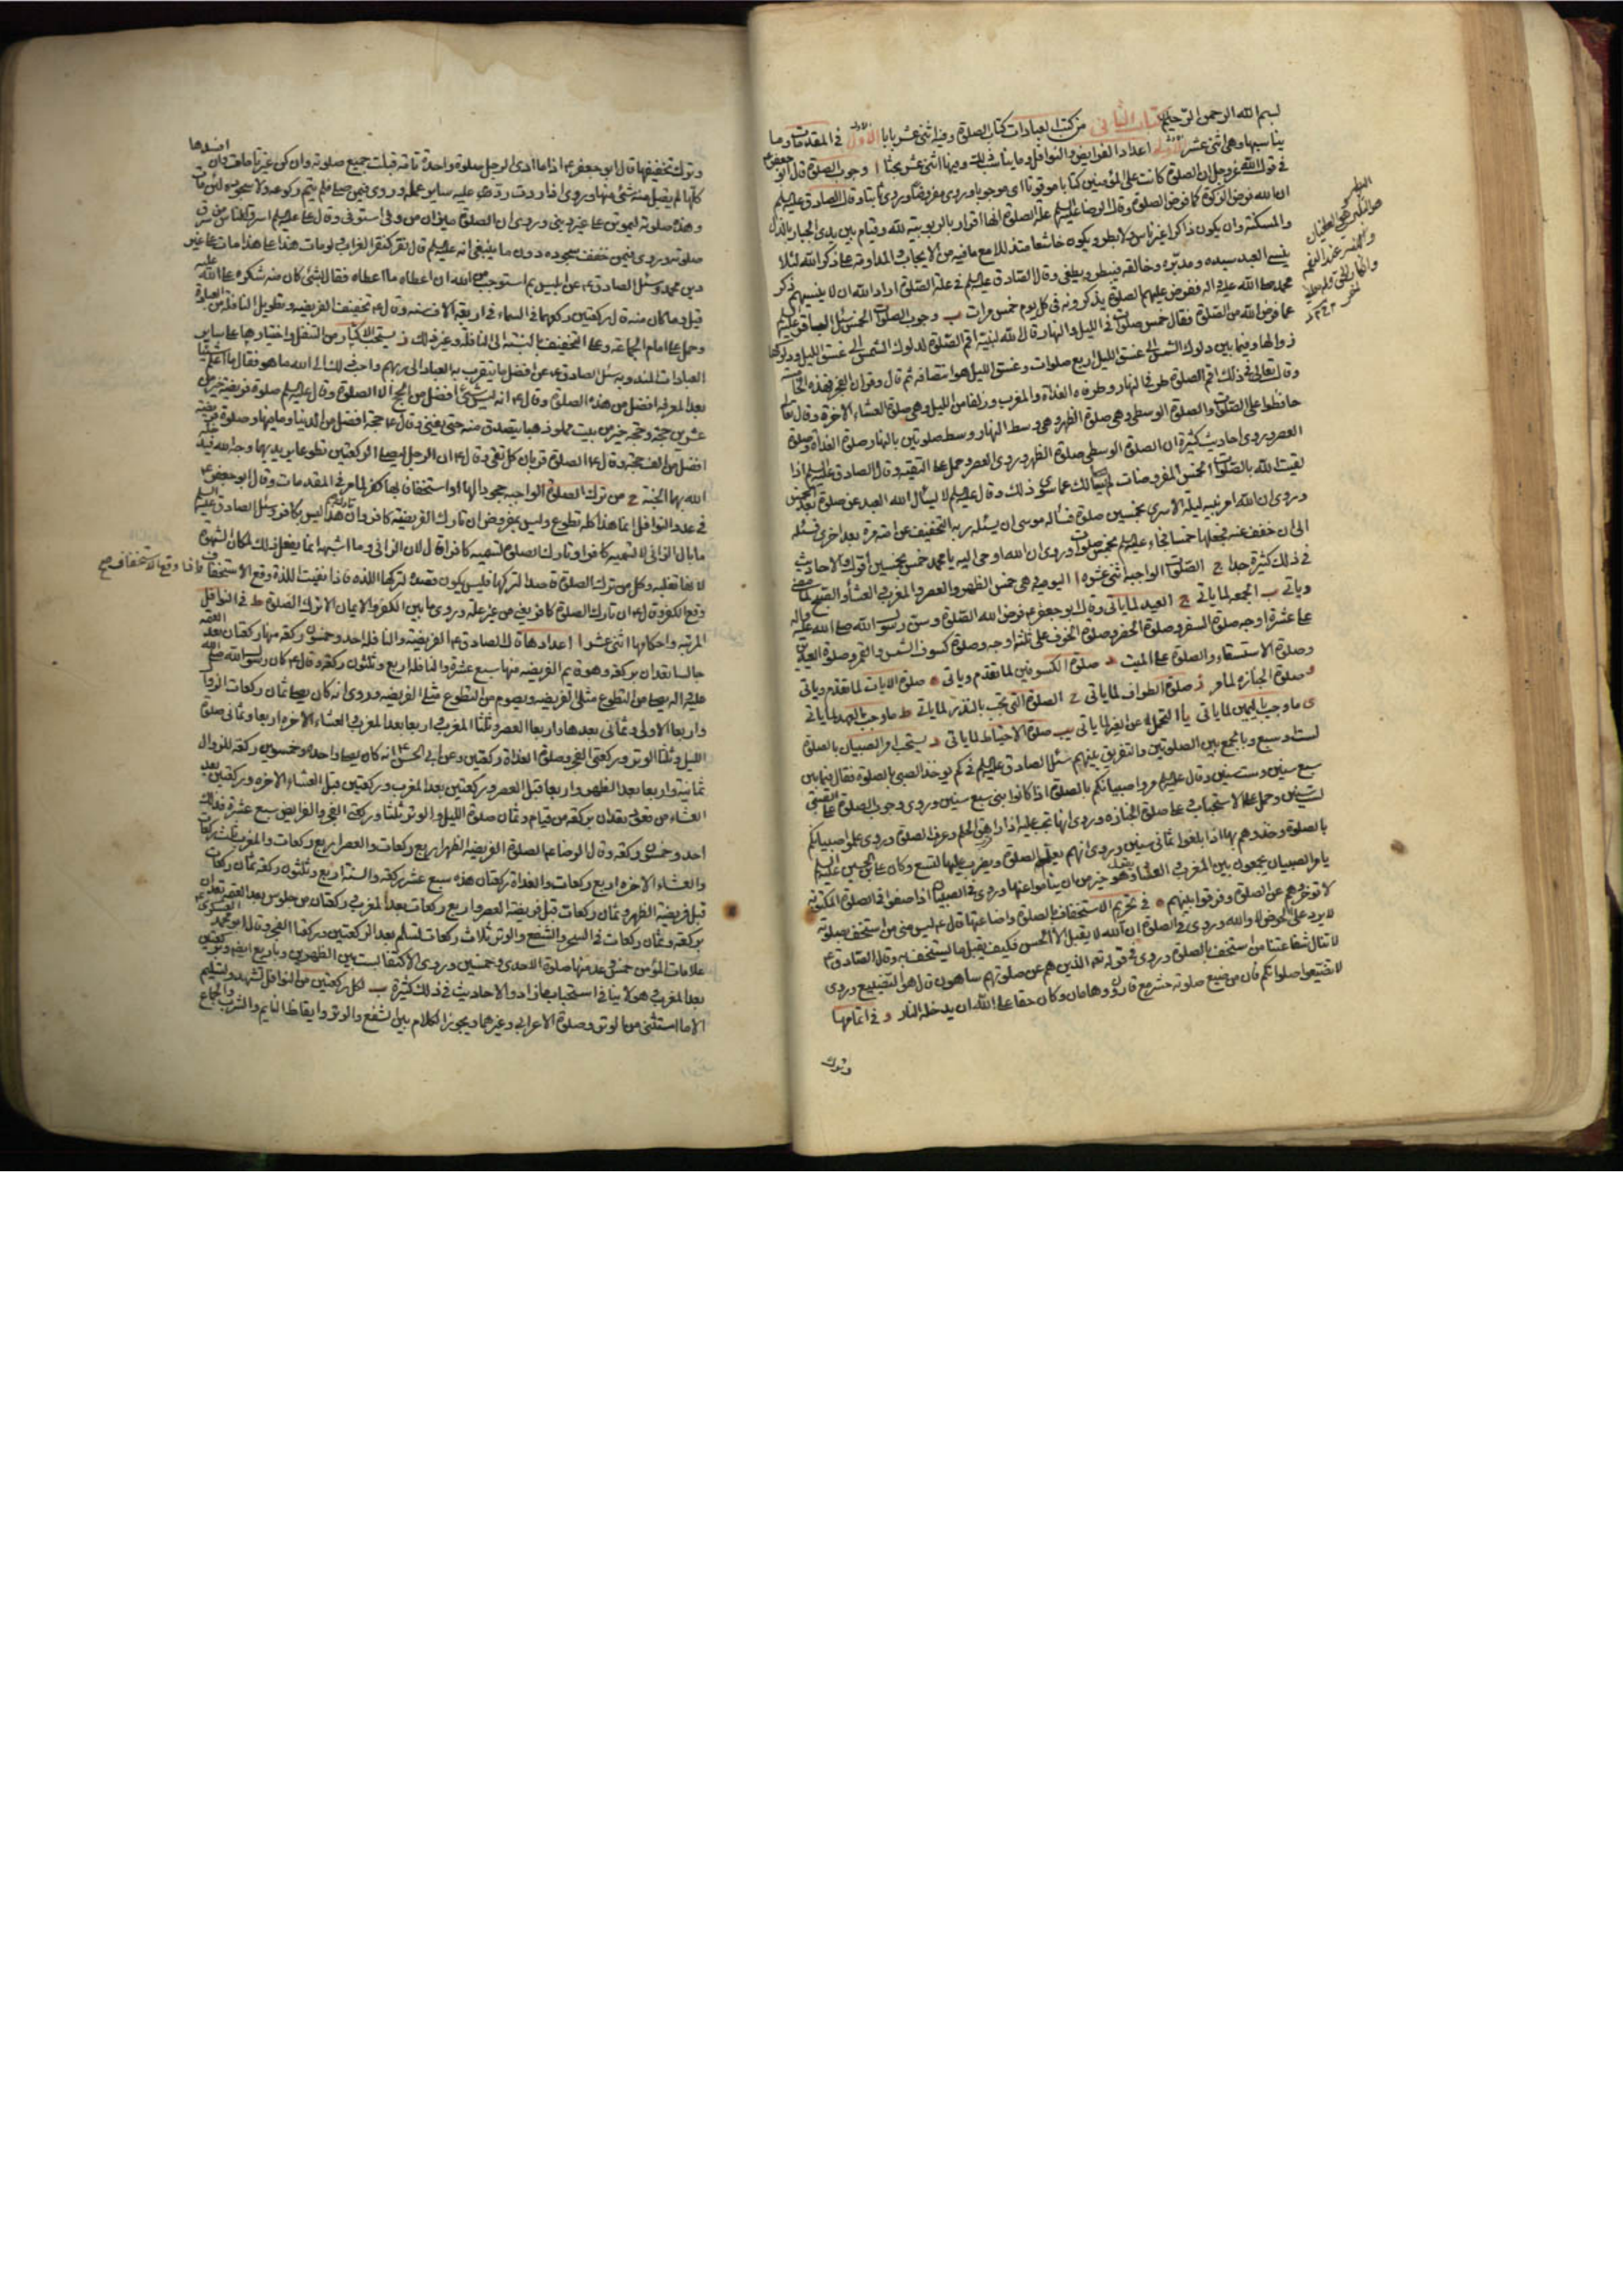 بسم الله الرحمن الرحيم الكتاب الثاني من كتب العبادات كتاب الصلوة وفيه اثنى عشر بابا الأول في المقدمات وما
يناسبها وهي اثنى عشر الأول اعداد الفرايض والنوافل وما يناسب ذلك وفيها اثنى عشر بحثا ا وجوب الصلوة قال ابو جعفر ع
في قول الله عز وجل ان الصلوة كانت على المؤمنين كتابا موقوتا اى موجوبا وروى مفروضا وروى ثابتا وقال الصادق عليه السلم
ان الله فرض الزكوة كما فرض الصلوة وقال الرضا عليه السلم علة الصلوة انها اقرار بالربوبية لله وقيام بين يدى الجبار بالذل
والمسكنة وان يكون ذاكرا غير ناس ولا بطر ويكون خاشعا متذللا مع ما فيه من الايجاب المداومة على ذكر الله لئلا
ينسى العبد سيده ومدبره وخالقه فيبطر ويطغى وقال الصادق عليه السلم في علة الصلوة اراد الله ان لا ينسيهم ذكر
محمد صلى الله عليه واله ففرض عليهم الصلوة يذكرونه في كل يوم خمس مرات ب وجوب الصلوات الخمس سئل الصادق عليه السلم
عما فرض الله من الصلوة فقال خمس صلوات في الليل والنهار قال الله لنبيه اقم الصلوة لدلوك الشمس الى غسق الليل ودلوكها
زوالها وفيما بين دلوك الشمس الى غسق الليل اربع صلوات وغسق الليل هو انتصافه ثم قال وقران الفجر فهذه الخامسة
وقال تعالى في ذلك اقم الصلوة طرفي النهار وطرفاه الغداة والمغرب وزلفا من الليل وهي صلوة العشاء الاخرة وقال تعالى
حافظوا على الصلوات والصلوة الوسطى وهي صلوة الظهر وهي وسط النهار ووسط صلوتين بالنهار صلوة الغداة وصلوة
العصر وروى احاديث كثيرة ان الصلوة الوسطى صلوة الظهر وروى العصر وحمل على التقية وقال الصادق عليه السلم اذا
لقيت الله بالصلوات الخمس المفروضات لم يسألك عما سوى ذلك وقال عليه السلم لا يسأل الله العبد عن صلوة بعد الخمس
وروى ان الله امر نبيه ليلة الاسرى بخمسين صلوة فسأله موسى ان يسئل ربه التخفيف عن امته مرة بعد اخرى فسئله
الى ان خفف عنه فجعلها خمسا فجاء عليه السلم بخمس صلوات وروى ان الله اوحى اليه يا محمد خمس بخمسين اقول والاحاديث
في ذلك كثيرة جدا ج الصلوات الواجبة اثنى عشرة ا اليومية وهي خمس الظهر والعصر والمغرب والعشاء والصبح لما مضى
وياتي ب الجمعة لما ياتي ج العيد لما ياتي وقال ابو جعفر ع فرض الله الصلوة وسن رسول الله صلى الله عليه واله
على عشرة اوجه صلوة السفر وصلوة الحضر وصلوة الخوف على ثلثة اوجه وصلوة كسوف الشمس والقمر وصلوة العيدين
وصلوة الاستسقاء والصلوة على الميت د صلوة الكسوفين لما تقدم وياتي ه صلوة الايات لما تقدم وياتي
و صلوة الجنازة لما مر ز صلوة الطواف لما ياتي ح الصلوة التي تجب بالنذر لما ياتي ط ما وجب بالعهد لما ياتي
ى ما وجب باليمين لما ياتي يا التحمل عن الغير لما ياتي يب صلوة الاحتياط لما ياتي د يستحب امر الصبيان بالصلوة
لست وسبع وبالجمع بين الصلوتين والتفريق بينهم سئل الصادق عليه السلم في كم يوخذ الصبي بالصلوة فقال فيما بين
سبع سنين وست سنين وقال عليه السلم مروا صبيانكم بالصلوة اذا كانوا بني سبع سنين وروى وجوب الصلوة على الصبي
لست سنين وحمل على الاستحباب على صلوة الجنازة وروى انها تجب عليه اذا راهق الحلم وعرف الصلوة وروى علموا صبيانكم
بالصلوة وخذوهم بها اذا بلغوا ثماني سنين وروى انهم يعلم الصلوة ويضرب عليها لتسع وكان علي بن الحسين عليه السلم
يامر الصبيان يجمعون بين المغرب والعشاء ويقول هو خير من ان يناموا عنها وروى في الصبيان اذا صفوا في الصلوة المكتوبة
لا توخروهم عن الصلوة وفرقوا بينهم ه في تحريم الاستخفاف بالصلوة واضاعتها قال ع ليس مني من استخف بصلوته
لا يرد علي الحوض لا والله وروى في الصلوة ان الله لا يقبل الا الحسن فكيف يقبل ما يستخف به وقال الصادق ع
لا تنال شفاعتنا من استخف بالصلوة وروى في قوله تع الذين هم عن صلوتهم ساهون قال هو التضييع وروى
لا تضيعوا صلواتكم فان من ضيع صلوته حشر مع قارون وهامان وكان حقا على الله ان يدخله النار و في اتمامها
وترك
وترك تخفيفها قال ابو جعفر ع اذا ما ادى الرجل صلوة واحدة تامة قبلت جميع صلوته وان كن غير تامات وان افسدها
كلها لم يقبل منه شئ منها وروى اذا ردت رد عليه ساير عمله وروى فيمن صلى فلم يتم ركوعه ولا سجوده لئن مات
وهذه صلوته ليموتن على غير ديني وروى ان الصلوة ميزان من وفى استوفى وقال عليه السلم اسرق الناس من سرق
صلوته وروى فيمن خفف سجوده دون ما ينبغي انه عليه السلم قال نقر كنقر الغراب لو مات هذا على هذا مات على غير
دين محمد وسئل الصادق ع عن ابليس بم استوجب من الله ان اعطاه ما اعطاه فقال لشئ كان منه شكره الله عليه
قيل وما كان منه قال ركعتين ركعهما في السماء في اربعة الاف سنة وقال ع تخفيف الفريضة وتطويل النافلة من العبادة
وحمل على امام الجماعة وعلى التخفيف بالنسبة الى النافلة وغير ذلك ز يستحب الاكثار من التنفل واختيارها على ساير
العبادات المندوبة سئل الصادق ع عن افضل ما يتقرب به العباد الى ربهم واحب ذلك الى الله ما هو فقال ما اعلم شيئا
بعد المعرفة افضل من هذه الصلوة وقال ع انه ليس شئ افضل من الحج الا الصلوة وقال عليه السلم صلوة فريضة خير من
عشرين حجة وحجة خير من بيت مملو ذهبا يتصدق منه حتى يفنى وقال ع حجة افضل من الدنيا وما فيها وصلوة فريضة
افضل من الف حجة وقال ع الصلوة قربان كل تقي وقال ع ان الرجل ليصلي الركعتين تطوعا يريد بهما وجه الله فيدخله
الله بهما الجنة ح من ترك الصلوة الواجبة جحودا لها او استخفافا بها كفر لما مر في المقدمات وقال ابو جعفر ع
في عدد النوافل انما هذا كله تطوع وليس بمفروض ان تارك الفريضة كافر وان تارك هذا ليس بكافر وسئل الصادق عليه السلم
ما بال الزاني لا تسميه كافرا وتارك الصلوة تسميه كافرا قال لان الزاني وما اشبهه انما يفعل ذلك لمكان الشهوة
لانها تغلبه وكل من ترك الصلوة قاصدا لتركها فليس يكون قصده لتركها اللذة فاذا نفيت اللذة وقع الاستخفاف
واذا وقع الاستخفاف صح
وقع الكفر وقال ع ان تارك الصلوة كافر يعني من غير علة وروى ما بين الكفر والايمان الا ترك الصلوة ط في النوافل
المرتبة واحكامها اثنى عشر ا اعدادها قال الصادق ع الفريضة والنافلة احد وخمسون ركعة منها ركعتان بعد العتمة
جالسا تعدان بركعة وهو قائم الفريضة منها سبع عشرة والنافلة اربع وثلثون ركعة وقال ع كان رسول الله صلى الله
عليه واله يصلي من التطوع مثلي الفريضة ويصوم من التطوع مثلي الفريضة وروى انه كان يصلي ثمان ركعات الزوال
واربعا الاولى وثماني بعدها واربعا العصر وثلثا المغرب واربعا بعد المغرب والعشاء الاخرة اربعا وثماني صلوة
الليل وثلثا الوتر وركعتي الفجر وصلوة الغداة ركعتين وعن ابي الحسن ع انه كان يصلي واحدة وخمسين ركعة للزوال
ثمانية واربعا بعد الظهر واربعا قبل العصر وركعتين بعد المغرب وركعتين قبل العشاء الاخرة وركعتين بعد
العشاء من قعود تعدان بركعة من قيام وثمان صلوة الليل والوتر ثلثا وركعتي الفجر والفرايض سبع عشرة فذلك
احد وخمسون ركعة وقال الرضا ع الصلوة الفريضة الظهر اربع ركعات والعصر اربع ركعات والمغرب ثلث ركعات
والعشاء الاخرة اربع ركعات والغداة ركعتان هذه سبع عشر ركعة والسنة اربع وثلثون ركعة ثمان ركعات
قبل فريضة الظهر وثمان ركعات قبل فريضة العصر واربع ركعات بعد المغرب وركعتان من جلوس بعد العتمة تعدان
بركعة وثمان ركعات في السحر والشفع والوتر ثلاث ركعات تسلم بعد الركعتين وركعتا الفجر وقال ابو محمد العسكري
علامات المؤمن خمس وعد منها صلوة الاحدى وخمسين وروى الاكتفا بست بين الظهرين وباربع ايضا وبركعتين
بعد المغرب وهو لا ينافي استحباب ما زاد والاحاديث في ذلك كثيرة ب لكل ركعتين من النوافل تشهد وتسليم
الا ما استثنى من الوتر وصلوة الاعرابي وغيرهما ويجوز الكلام بين الشفع والوتر وايقاظ النايم والشرب والجماع